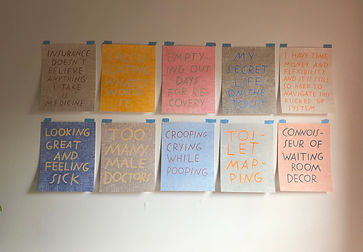 INSURANCE
DOESN'T
BELIEVE
ANYTHING
I TAKE
IS
MEDICINE
EMPTY-
ING OUT
DAYS
FOR RE-
COVERY
MY
SECRET
LIFE
ON THE
TOILET
I HAVE TIME,
MONEY AND
FLEXIBILITY
AND IT IS STILL
SO HARD TO
NAVIGATE THIS
FUCKED UP
SYSTEM
LOOKING
GREAT
AND
FEELING
SICK
TOO
MANY
MALE
DOCTORS
CROOPING:
CRYING
WHILE
POOPING
TOI-
LET
MAP-
PING
CONNOIS-
SEUR OF
WAITING
ROOM
DECOR